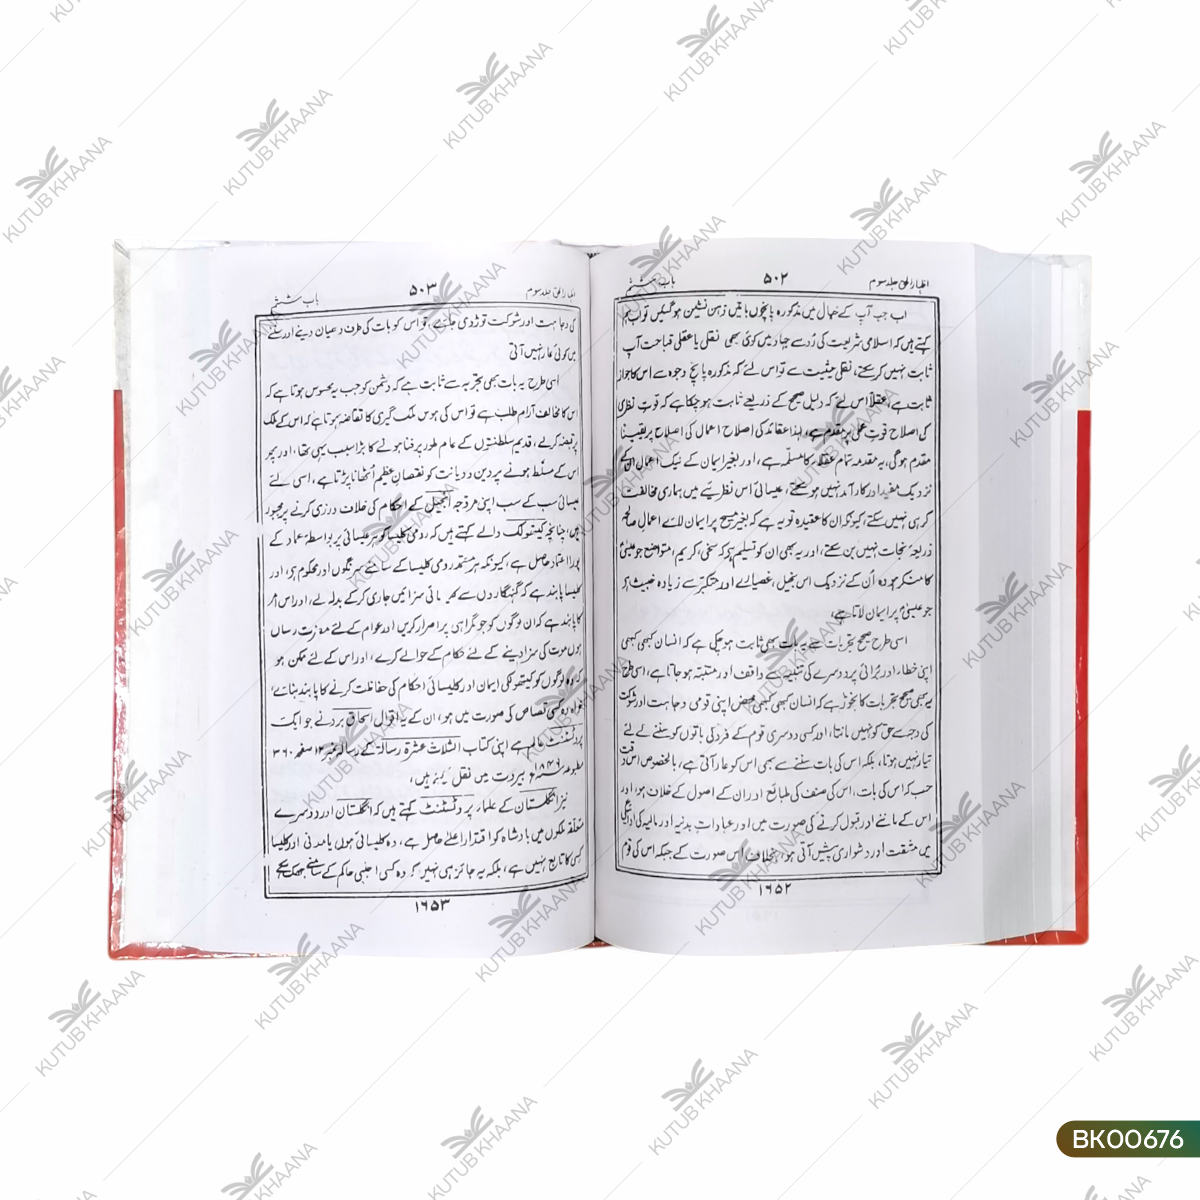 اظہار الحق جلد سوم
۵۰۲
باب ششم
اب جب آپ کے خیال میں مذکورہ پانچوں باتیں ذہن نشین ہو گئیں تو اب ہم
کہتے ہیں کہ اسلامی شریعت کی رُو سے جہاد میں کوئی بھی نقلی یا عقلی قباحت آپ
ثابت نہیں کر سکتے، نقلی حیثیت سے تو اس لئے کہ مذکورہ پانچ وجوہ سے اس کا جواز
ثابت ہے، عقلاً اس لئے کہ دلیل صحیح کے ذریعے ثابت ہو چکا ہے کہ قوتِ نظری
کی اصلاح قوتِ عملی پر مقدم ہے، لہٰذا عقائد کی اصلاح اعمال کی اصلاح پر یقیناً
مقدم ہو گی، یہ مقدمہ تمام عقلاء کا مسلّمہ ہے، اور بغیر ایمان کے نیک اعمال ان کے
نزدیک مفید اور کارآمد نہیں ہو سکتے، عیسائی اس نظریے میں ہماری مخالفت
کر ہی نہیں سکتے، کیونکہ ان کا عقیدہ تو یہ ہے کہ بغیر مسیح پر ایمان لائے اعمالِ صالحہ
ذریعہ نجات نہیں بن سکتے، اور یہ بھی ان کو تسلیم ہے کہ سخی، کریم، متواضع جو عیسیٰؑ
کا منکر ہو وہ اُن کے نزدیک اس بخیل، غصیلے اور متکبر سے زیادہ خبیث ہے
جو عیسیٰؑ پر ایمان لاتا ہے،
اسی طرح صحیح تجربات سے یہ بات بھی ثابت ہو چکی ہے کہ انسان کبھی کبھی
اپنی خطاء اور بُرائی پر دوسرے کی تنبیہ سے واقف اور متنبّہ ہو جاتا ہے، اسی طرح
یہ بھی صحیح تجربات کا نچوڑ ہے کہ انسان کبھی کبھی محض اپنی قومی وجاہت اور شوکت
کی وجہ سے حق کو نہیں مانتا، اور کسی دوسری قوم کے فرد کی باتوں کو سننے کے لئے
تیار نہیں ہوتا، بلکہ اس کی بات سننے سے بھی اس کو عار آتی ہے، بالخصوص اس وقت
جب کہ اس کی بات، اس کی صنف کی طبائع اور ان کے اصول کے خلاف ہو، اور
اس کے ماننے اور قبول کرنے کی صورت میں اور عباداتِ بدنیہ اور مالیہ کی ادائیگی
میں مشقت اور دشواری پیش آتی ہو، بخلاف اس صورت کے جبکہ اس کی قوم
۱۶۵۲
اظہار الحق جلد سوم
۵۰۳
باب ششم
کی وجاہت اور شوکت توڑ دی جائے، تو اس کو بات کی طرف دھیان دینے اور سننے
میں کوئی عار نہیں آتی
اسی طرح یہ بات بھی تجربہ سے ثابت ہے کہ دشمن کو جب یہ محسوس ہوتا ہے کہ
اس کا مخالف آرام طلب ہے تو اس کی ہوسِ ملک گیری کا تقاضہ ہوتا ہے کہ اس کے ملک
پر قبضہ کر لے، قدیم سلطنتوں کے عام طور پر فنا ہونے کا بڑا سبب یہی تھا، اور پھر
اس کے مسلّط ہونے پر دین و دیانت کو نقصانِ عظیم اُٹھانا پڑتا ہے، اسی لئے
عیسائی سب کے سب اپنی مروّجہ انجیل کے احکام کی خلاف ورزی کرنے پر مجبور
ہیں، چنانچہ کیتھولک والے کہتے ہیں کہ رومی کلیسا کو ہر عیسائی پر بواسطۂ عماد کے
پورا اعتماد حاصل ہے، کیونکہ ہر معتمد رومی کلیسا کے سامنے سرنگوں اور محکوم ہے، اور
کلیسا پابند ہے کہ گنہگاروں سے کلیسائی سزائیں جاری کر کے بدلہ لے، اور اس امر
کا پابند ہے کہ ان لوگوں کو جو گمراہی پر اصرار کریں اور عوام کے لئے مضرت رساں
ہوں موت کی سزا دینے کے لئے حکام کے حوالے کرے، اور اس کے لئے ممکن ہو
کہ وہ لوگوں کو کیتھولکی ایمان اور کلیسائی احکام کی حفاظت کرنے کا پابند بنائے،
خواہ وہ کسی قصاص کی صورت میں ہو، ان کے یہ اقوال اسحاق بردنے جو ایک
پروٹسٹنٹ عالم ہے اپنی کتاب الثلاث عشرۃ رسالۃ کے رسالہ نمبر ۱۲ صفحہ ۳۶۰
مطبوعہ ۱۸۴۹ء بیروت میں نقل کئے ہیں،
نیز انگلستان کے علماء پروٹسٹنٹ کہتے ہیں کہ انگلستان اور دوسرے
متعلّقہ ملکوں میں بادشاہ کو اقتدارِ اعلےٰ حاصل ہے، وہ کلیسائی ہوں یا مدنی اور کلیسا
کسی کا تابع نہیں ہے، بلکہ یہ جائز ہی نہیں کہ وہ کسی اجنبی حاکم کے سامنے جھک سکے
۱۶۵۳
KUTUB KHAANA
BK00676